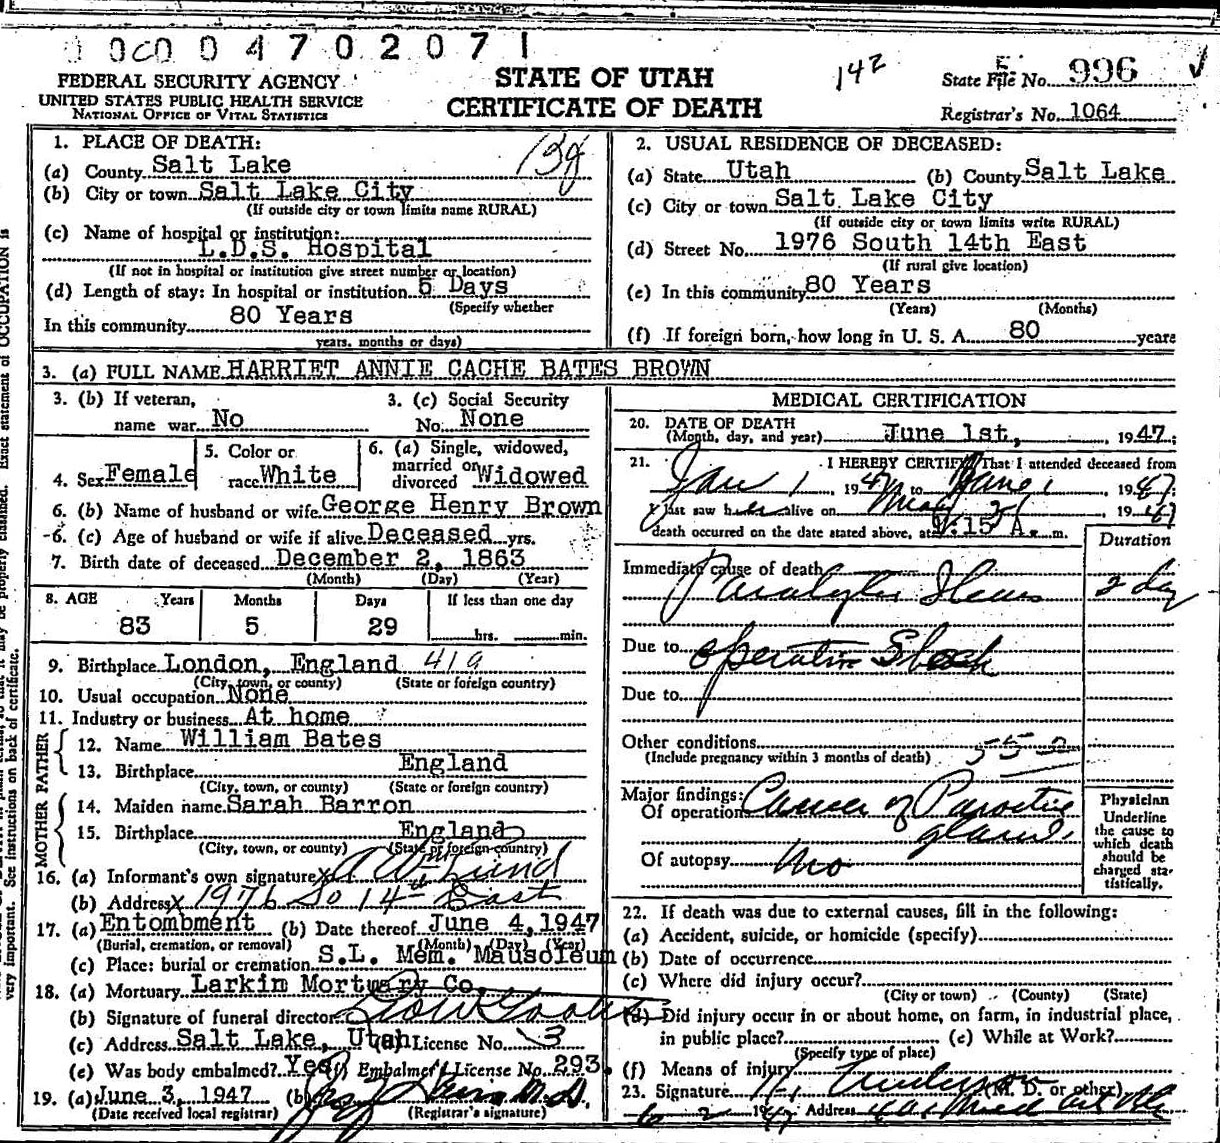 0 0C0 0 4 7 0 2 0 7 1
FEDERAL SECURITY AGENCY
UNITED STATES PUBLIC HEALTH SERVICE
NATIONAL OFFICE OF VITAL STATISTICS
STATE OF UTAH
CERTIFICATE OF DEATH
142
State File No. 996
Registrar's No. 1064
1. PLACE OF DEATH:
(a) County Salt Lake
(b) City or town Salt Lake City
(If outside city or town limits name RURAL)
(c) Name of hospital or institution:
L.D.S. Hospital
(If not in hospital or institution give street number or location)
(d) Length of stay: In hospital or institution 5 Days
(Specify whether
In this community 80 Years
years, months or days)
2. USUAL RESIDENCE OF DECEASED:
(a) State Utah (b) County Salt Lake
(c) City or town Salt Lake City
(If outside city or town limits write RURAL)
(d) Street No. 1976 South 14th East
(If rural give location)
(e) In this community 80 Years
(Years) (Months)
(f) If foreign born, how long in U. S. A. 80 years
3. (a) FULL NAME HARRIET ANNIE CACHE BATES BROWN
3. (b) If veteran, name war No
3. (c) Social Security No. None
4. Sex Female
5. Color or race White
6. (a) Single, widowed, married or divorced Widowed
6. (b) Name of husband or wife George Henry Brown
6. (c) Age of husband or wife if alive Deceased yrs.
7. Birth date of deceased December 2, 1863
(Month) (Day) (Year)
8. AGE Years Months Days If less than one day
83 5 29 hrs. min.
9. Birthplace London, England 419
(City, town, or county) (State or foreign country)
10. Usual occupation None
11. Industry or business At home
FATHER
12. Name William Bates
13. Birthplace England
(City, town, or county) (State or foreign country)
MOTHER
14. Maiden name Sarah Barron
15. Birthplace England
(City, town, or county) (State or foreign country)
16. (a) Informant's own signature x A W Lund
(b) Address x 1976 So 14th East
17. (a) Entombment (b) Date thereof June 4, 1947
(Burial, cremation, or removal) (Month) (Day) (Year)
(c) Place: burial or cremation S.L. Mem. Mausoleum
18. (a) Mortuary Larkin Mortuary Co.
(b) Signature of funeral director
(c) Address Salt Lake, Utah (d) License No. 3
(e) Was body embalmed? Yes (f) Embalmer's License No. 293
19. (a) June 3, 1947 (b) M.D.
(Date received local registrar) (Registrar's signature)
MEDICAL CERTIFICATION
20. DATE OF DEATH
(Month, day, and year) June 1st, , 1947;
21. I HEREBY CERTIFY That I attended deceased from
Jan 1, 194 to June 1, 1947;
I last saw her alive on May 1947
death occurred on the date stated above, at :15 A. m.
Duration
Immediate cause of death
Paralytic Ileus 2 day
Due to operative Shock
Due to
Other conditions
(Include pregnancy within 3 months of death) 55
Major findings:
Of operation Cancer of Parotid
gland.
Of autopsy No
Physician
Underline
the cause to
which death
should be
charged sta-
tistically.
22. If death was due to external causes, fill in the following:
(a) Accident, suicide, or homicide (specify)
(b) Date of occurrence
(c) Where did injury occur?
(City or town) (County) (State)
(d) Did injury occur in or about home, on farm, in industrial place,
in public place? (e) While at Work?
(Specify type of place)
(f) Means of injury
23. Signature Anderson (M. D. or other)
6 2 1947 Address
very important. See instructions on back of certificate.